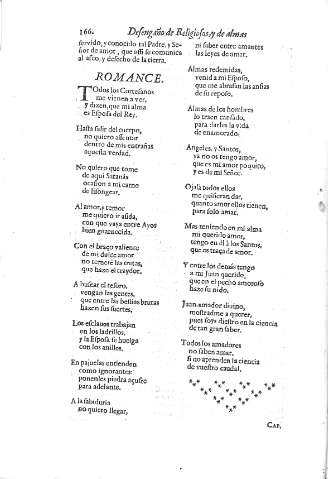 166. Desengaño de Religiosos, y de almas
servido, y conocido tal Padre, y Se-
ñor de amor, que assi se comunica
al asco, y desecho de la tierra.
ROMANCE.
TOdos los Cortesanos
me vienen a ver,
y dizen, que mi alma
es Esposa del Rey.
Hasta salir del cuerpo,
no quiero assentir
dentro de mis entrañas
aquesta verdad.
No quiero que tome
de aqui Satanàs
ocasion a mi carne
de lisongear.
Al amor, y temor
me quiero ir asida,
con que vaya entre Ayos
bien guarnecida.
Con el braço valiente
de mi dulce amor
no temerè las tretas,
que haze el traydor.
A buscar el tesoro,
vengan las gentes,
que entre las bestias brutas
hazen sus suertes.
Los esclauos trabajan
en los ladrillos,
y la Esposa se huelga
con los anillos.
En pajuelas entienden
como ignorantes
ponenles piedra açufre
para adelante.
A la sabiduria
no quiero llegar,
ni saber entre amantes
las leyes de amar.
Almas redemidas,
venid a mi Esposo,
que me abrasan las ansias
de su reposo.
Almas de los hombres
lo traen cansado,
para darles la vida
de enamorado.
Angeles, y Santos,
ya no os tengo amor,
que es mi amor poquito,
y es de mi Señor.
Ojalà todos ellos
me quisieran dar,
quanto amor ellos tienen,
para solo amar.
Mas teniendo en mi alma
mi querido amor,
tengo en èl a los Santos,
que os traça de amor.
Y entre los demàs tengo
a mi Juan querido,
que en el pecho amoroso
haze su nido.
Juan amador divino,
mostradme a querer,
pues sois diestro en la ciencia
de tan gran saber.
Todos los amadores
no saben amar,
si no aprenden la ciencia
de vuestro caudal.
CAP.